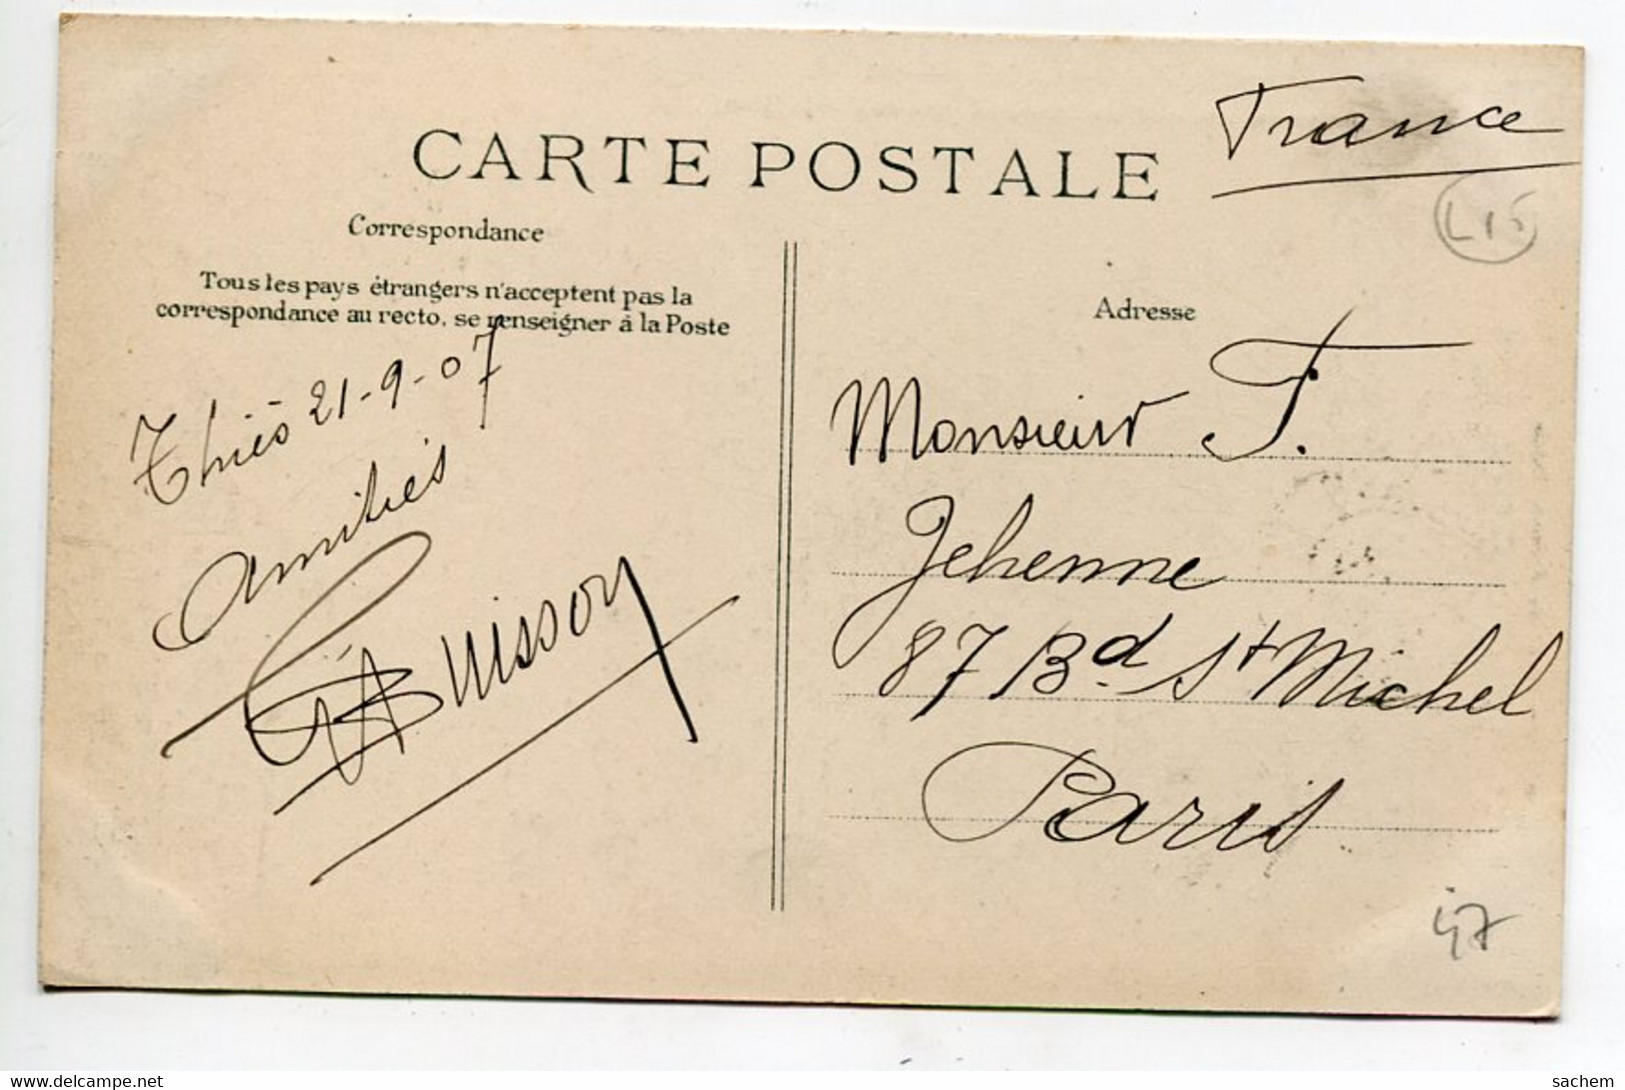 France
CARTE POSTALE
L15
Correspondance
Tous les pays étrangers n'acceptent pas la
correspondance au recto, se renseigner à la Poste
Thiès 21-9-07
Amitiés
Buisson
Adresse
Monsieur F.
Jehenne
87 Bd St Michel
Paris
47
delcampe.net
sachem